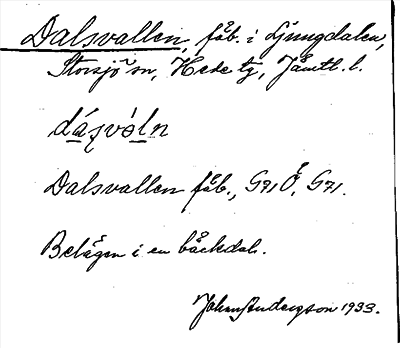 Dalsvallen, fäb. i Ljungdalen,
Storsjö sn, Hede tg, Jämtl. l.
dásvàln
Dalsvallen fäb., G71Ö, G71.
Belägen i en bäckdal.
John Andersson 1933.